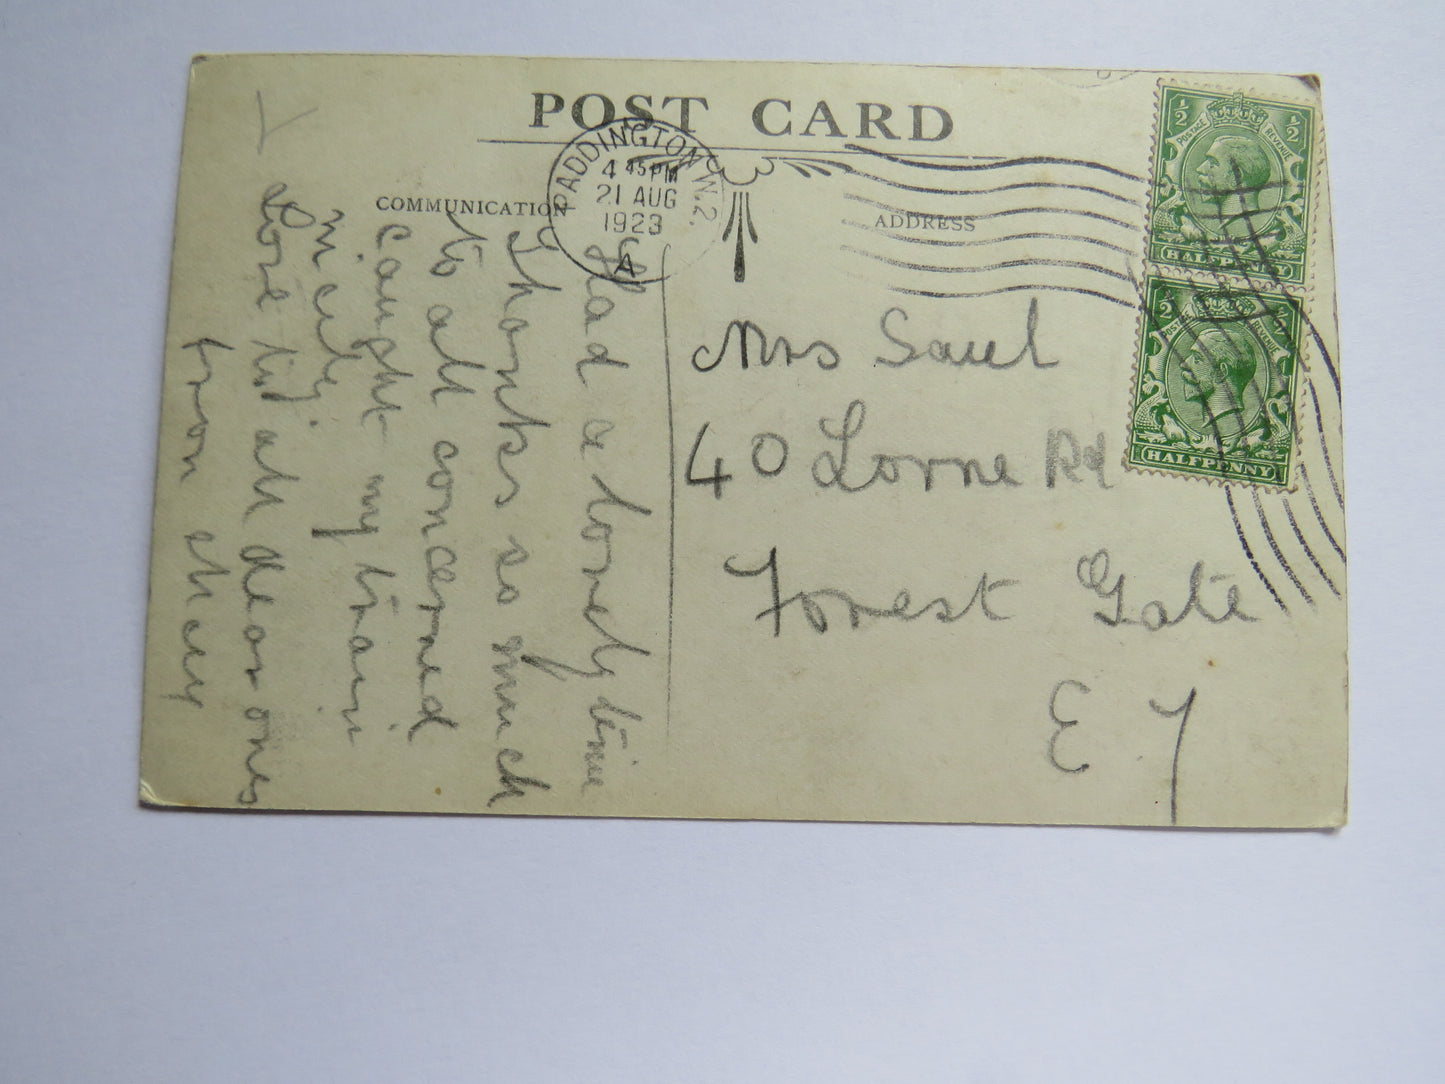 POST CARD
COMMUNICATION
ADDRESS
PADDINGTON W.2.
4 45 PM
21 AUG
1923
A
½ ½
POSTAGE REVENUE
HALFPENNY
½ ½
POSTAGE REVENUE
HALFPENNY
Had a lovely time
Thanks so much
to all concerned
caught my train
nicely.
Love to all dear ones
from
Mrs Saul
40 Lorne Rd
Forest Gate
E 7